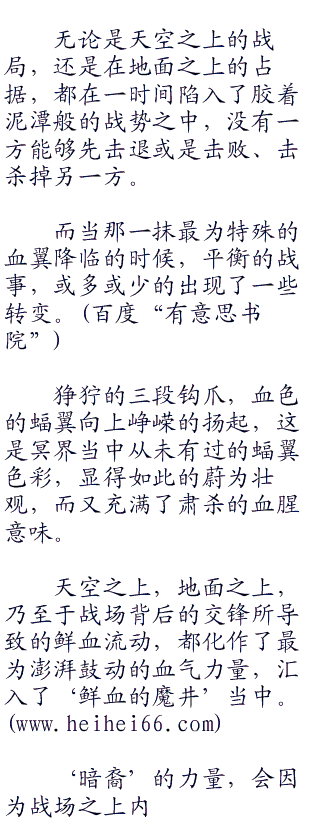 无论是天空之上的战
局，还是在地面之上的占
据，都在一时间陷入了胶着
泥潭般的战势之中，没有一
方能够先击退或是击败、击
杀掉另一方。
而当那一抹最为特殊的
血翼降临的时候，平衡的战
事，或多或少的出现了一些
转变。(百度“有意思书
院”)
狰狞的三段钩爪，血色
的蝠翼向上峥嵘的扬起，这
是冥界当中从未有过的蝠翼
色彩，显得如此的蔚为壮
观，而又充满了肃杀的血腥
意味。
天空之上，地面之上，
乃至于战场背后的交锋所导
致的鲜血流动，都化作了最
为澎湃鼓动的血气力量，汇
入了‘鲜血的魔井’当中。
(www.heihei66.com)
‘暗裔’的力量，会因
为战场之上内